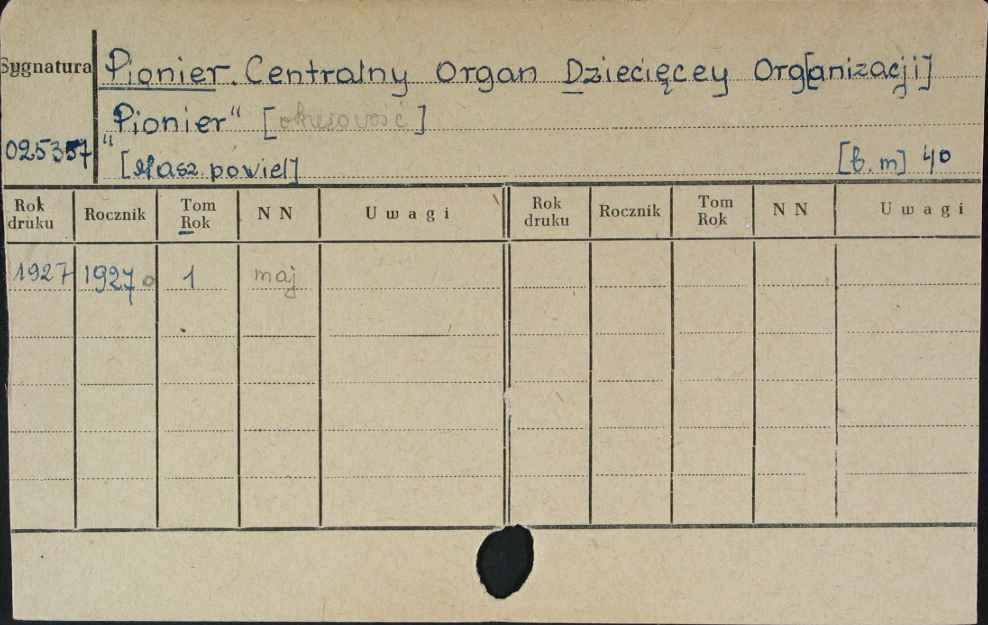 Sygnatura
Pionier. Centralny Organ Dziecięcey Org[anizacji]
"Pionier" []
025357
[Masz. powiel] [b.m] 40
Rok druku Rocznik Tom Rok N N Uwagi Rok druku Rocznik Tom Rok N N Uwagi
1927 1927 1 maj